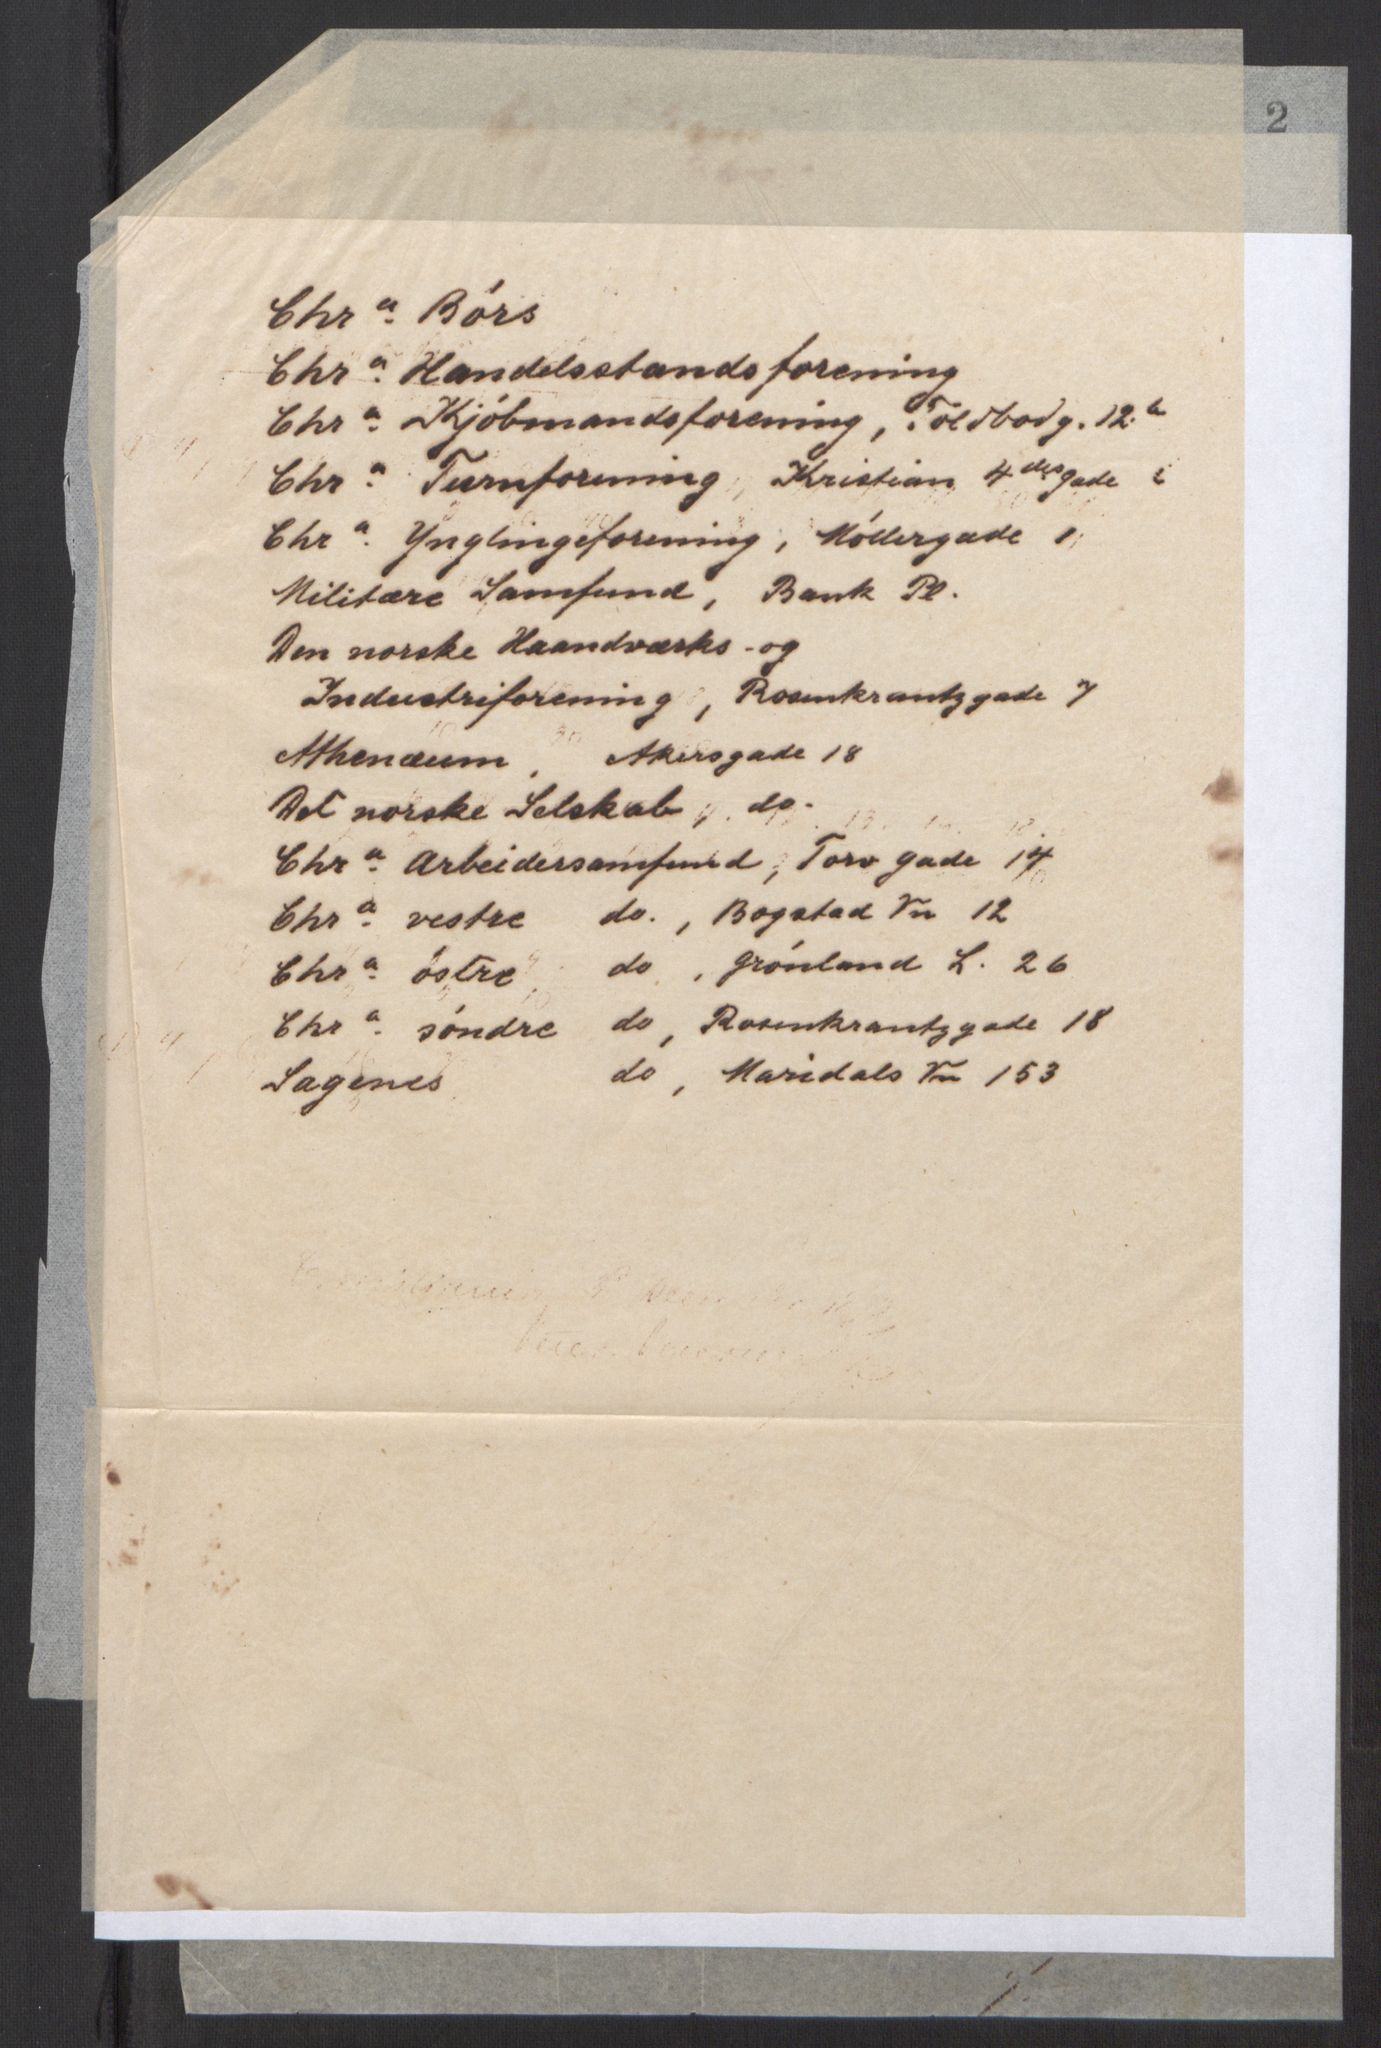 2
Chrª. Börs
Chrª. Handelsstandsforening
Chrª. Kjöbmandsforening, Toldbodg. 12.
Chrª. Turnforening, Kristian 4des gade
Chrª. Ynglingeforening, Möllergade 1
Militære Samfund, Bank Pl.
Den norske Haandværks-og
Industriforening, Rosenkrantzgade 7
Athenæum, Akersgade 18
Det norske Selskab, do.
Chrª. Arbeidersamfund, Torvgade 14
Chrª. vestre do., Bogstad Vn 12
Chrª. östre do, Grönland L. 26
Chrª. söndre do, Rosenkrantzgade 18
Sagenes do, Maridals Vn 153